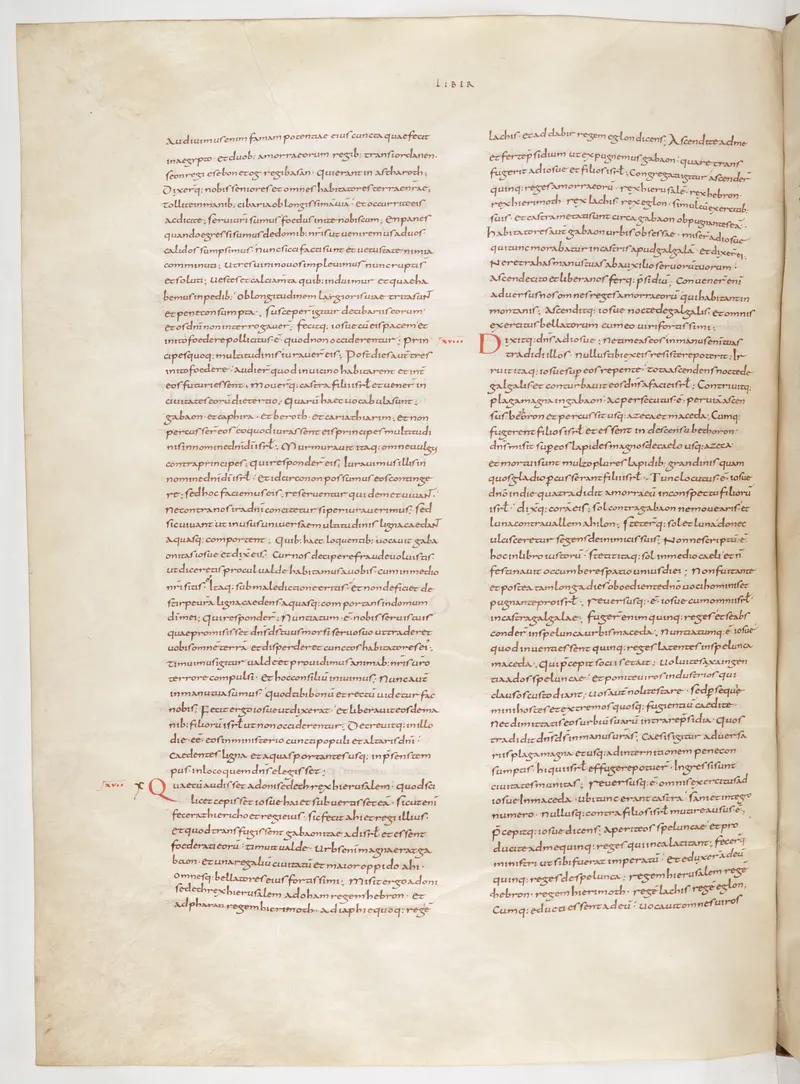 LIBER
Audiuimus enim famam potentiae eius cuncta quae fecit
in aegypto et duob: amorraeorum regib: trans iordanen.
seon regi esebon et og regi basan qui erant in astharoth;
Dixerq: nobis seniores et omnes habitatores terrae nrae;
tollite in manib: cibaria ob longissimā uiā et occurrite eis
ac dicite; serui uri sumus foedus inite nobiscum; En panes
quando egressi sumus de domib: nris ut ueniremus ad uos
calidos sumpsimus nunc sicci facti sunt et uetustate nimia
comminuti; utres uini nouos impleuimus nunc rupti s̄
et soluti; uestes et calciamta quib: induimur et quae ha
bemus in pedib: ob longitudinem largioris uiae trita sūt
et pene consumpta; susceper igitur de cibariis eorum
et os dni non interrogauer; fecitq: iosue cū eis pacem et
inito foedere pollicitus ē quod non occiderentur; prin
cipesq: multitudinis iurauer eis; Post dies aut tres
initi foederis audier quod in uicino habitarent et int
eos futuri essent; Mouerq: castra filii isrl et uener in
ciuitates eorū die tertio; Quarū haec uocabula sunt;
gabaon et caphira et beroth et cariathiarim; et non
percusser eos eo quod iurassent eis principes multitudi
nis in nomine dni di isrl; Murmurauit itaq: omne uulgus
contra principes; qui responder eis; Iurauimus illis in
nomine dni di isrl et idcirco non possumus eos continge
re; sed hoc faciemus eis; reseruentur quidem et uiuant
ne contra nos ira dni concitetur si peiurauerimus; sed
sic uiuant ut in usus uniuersae multitudinis ligna caedant
aquasq: comportent; Quib: haec loquentib: uocauit gaba
onitas iosue et dix eis; Cur nos decipere fraude uoluistis
ut diceretis procul ualde habitamus a uobis cum in medio
nri sitis; Itaq: sub maledictione eritis et non deficiet de
stirpe ura ligna caedens aquasq: comportans in domum
di mei; qui responder; Nuntiatum ē nobis seruis tuis
quae promisisset dns ds tuus mosi seruo suo ut traderet
uobis omnē terrā et disperder et cunctos habitatores ei;
timuimus igitur ualde et prouidimus animab: nris uro
terrore compulsi et hoc consiliū iniuimus; Nunc aut
in manu tua sumus quod tibi bonū et rectū uidetur fac
nobis; Fecit ergo iosue ut dixerat et liberauit eos de ma
nib: filiorū isrl ut non occiderentur; Decreuitq: in illo
die eē eos in ministerio cuncti populi et altaris dni
caedentes ligna et aquas portantes usq: in psentem
pus in loco quem dns elegisset;
xvii Quae cū audisset adonisedech rex hierusalem quod sci
licet cepisset iosue hai et subuertisset eā sicut eni
fecerat hiericho et regi eius sic fecit ahi et regi illius
et quod transfugissent gabaonitae ad isrl et essent
foederati eorū timuit ualde; Urbs eni magna erat ga
baon et una regaliū ciuitatū et maior oppido ahi
omnesq: bellatores eius fortissimi; Misit ergo adoni
sedech rex hierusalem ad oham regem hebron et
ad pharan regem hierimoth ad iaphie quoq: regē
lachis et ad dabir regem eglon dicens; Ascendite ad me
et ferte psidium ut expugnemus gabaon quare trans
fugerit ad iosue et filios isrl; Congregati igitur ascender
quinq: reges amorraeorū rex hierusalē rex hebron
rex hierimoth rex lachis rex eglon simul cū exercitib:
suis et castrametati sunt circa gabaon obpugnantes eā
habitatores aut gabaon urbis obsessae miser ad iosue
qui tunc morabatur in castris apud galgalā et dixer ei;
Ne retrahas manus tuas ab auxilio seruorū tuorum
ascende cito et libera nos ferq: psidiū; Conuener eni
aduersus nos omnes reges amorraeorū qui habitant in
montanis; Ascenditq: iosue noctē de galgalis et omnis
exercitus bellatorum cum eo uiri fortissimi;
xviii Dixitq: dns ad iosue; Ne timeas eos in manus eni tuas
tradidi illos nullus tibi ex eis resistere poterit; Ir
ruit itaq: iosue sup eos repente tota ascendens nocte de
galgalis et conturbauit eos dns a facie isrl; Contriuitq:
plaga magna in gabaon ac persecutus ē per uiā ascen
sus bethoron et percussit usq: azeca et maceda; Cumq:
fugerent filios isrl et essent in descensu bethoron
dns misit sup eos lapides magnos de caelo usq: azeca
et mortui sunt multo plures lapidib: grandinis quam
quos gladio percusserant filii isrl; Tunc locutus ē iosue
dno in die qua tradidit amorraeū in conspectu filiorū
isrl dixq: corā eis; sol contra gabaon ne mouearis et
luna contra uallem ahilon; steterq: sol et luna donec
ulcisceretur se gens de inimicis suis; Nonne scriptū ē
hoc in libro iustorū; stetit itaq: sol in medio caeli et n̄
festinauit occumbere spatio unius diei; Non fuit ante
et postea tam longa dies oboediente dno uoci hominis et
pugnante pro isrl; reuersusq: ē iosue cum omni isrl
in castra galgalae; fugerant enim quinq: reges et se abs
conder in spelunca urbis maceda; Nuntiatumq: ē iosue
quod inuenti essent quinq: reges latentes in spelunca
maceda; qui pcepit sociis et ait; Uoluite saxa ingen
tia ad os speluncae et ponite uiros industrios qui
clausos custodiant; uos aut nolite stare sed pseque
mini hostes et extremos quosq: fugientiū caedite
nec dimittatis eos urbiū suarū intrare psidia quos
tradidit dns ds in manus uras; Caesis igitur aduersa
riis plaga magna et usq: ad internitionem pene con
sumptis hi qui isrl effugere potuer Ingressi sunt
ciuitates munitas; reuersusq: ē omnis exercitus ad
iosue in maceda ubi tunc erant castra sani et integro
numero nullusq: contra filios isrl mutire ausus ē;
pcepitq: iosue dicens; aperite os speluncae et pro
ducite ad me quinq: reges qui in ea latitant; fecerq:
ministri ut sibi fuerat imperatū et eduxer ad eū
quinq: reges de spelunca; regem hierusalem regē
hebron regem hierimoth regē lachis regē eglon;
Cumq: educti essent ad eū uocauit omnes uiros